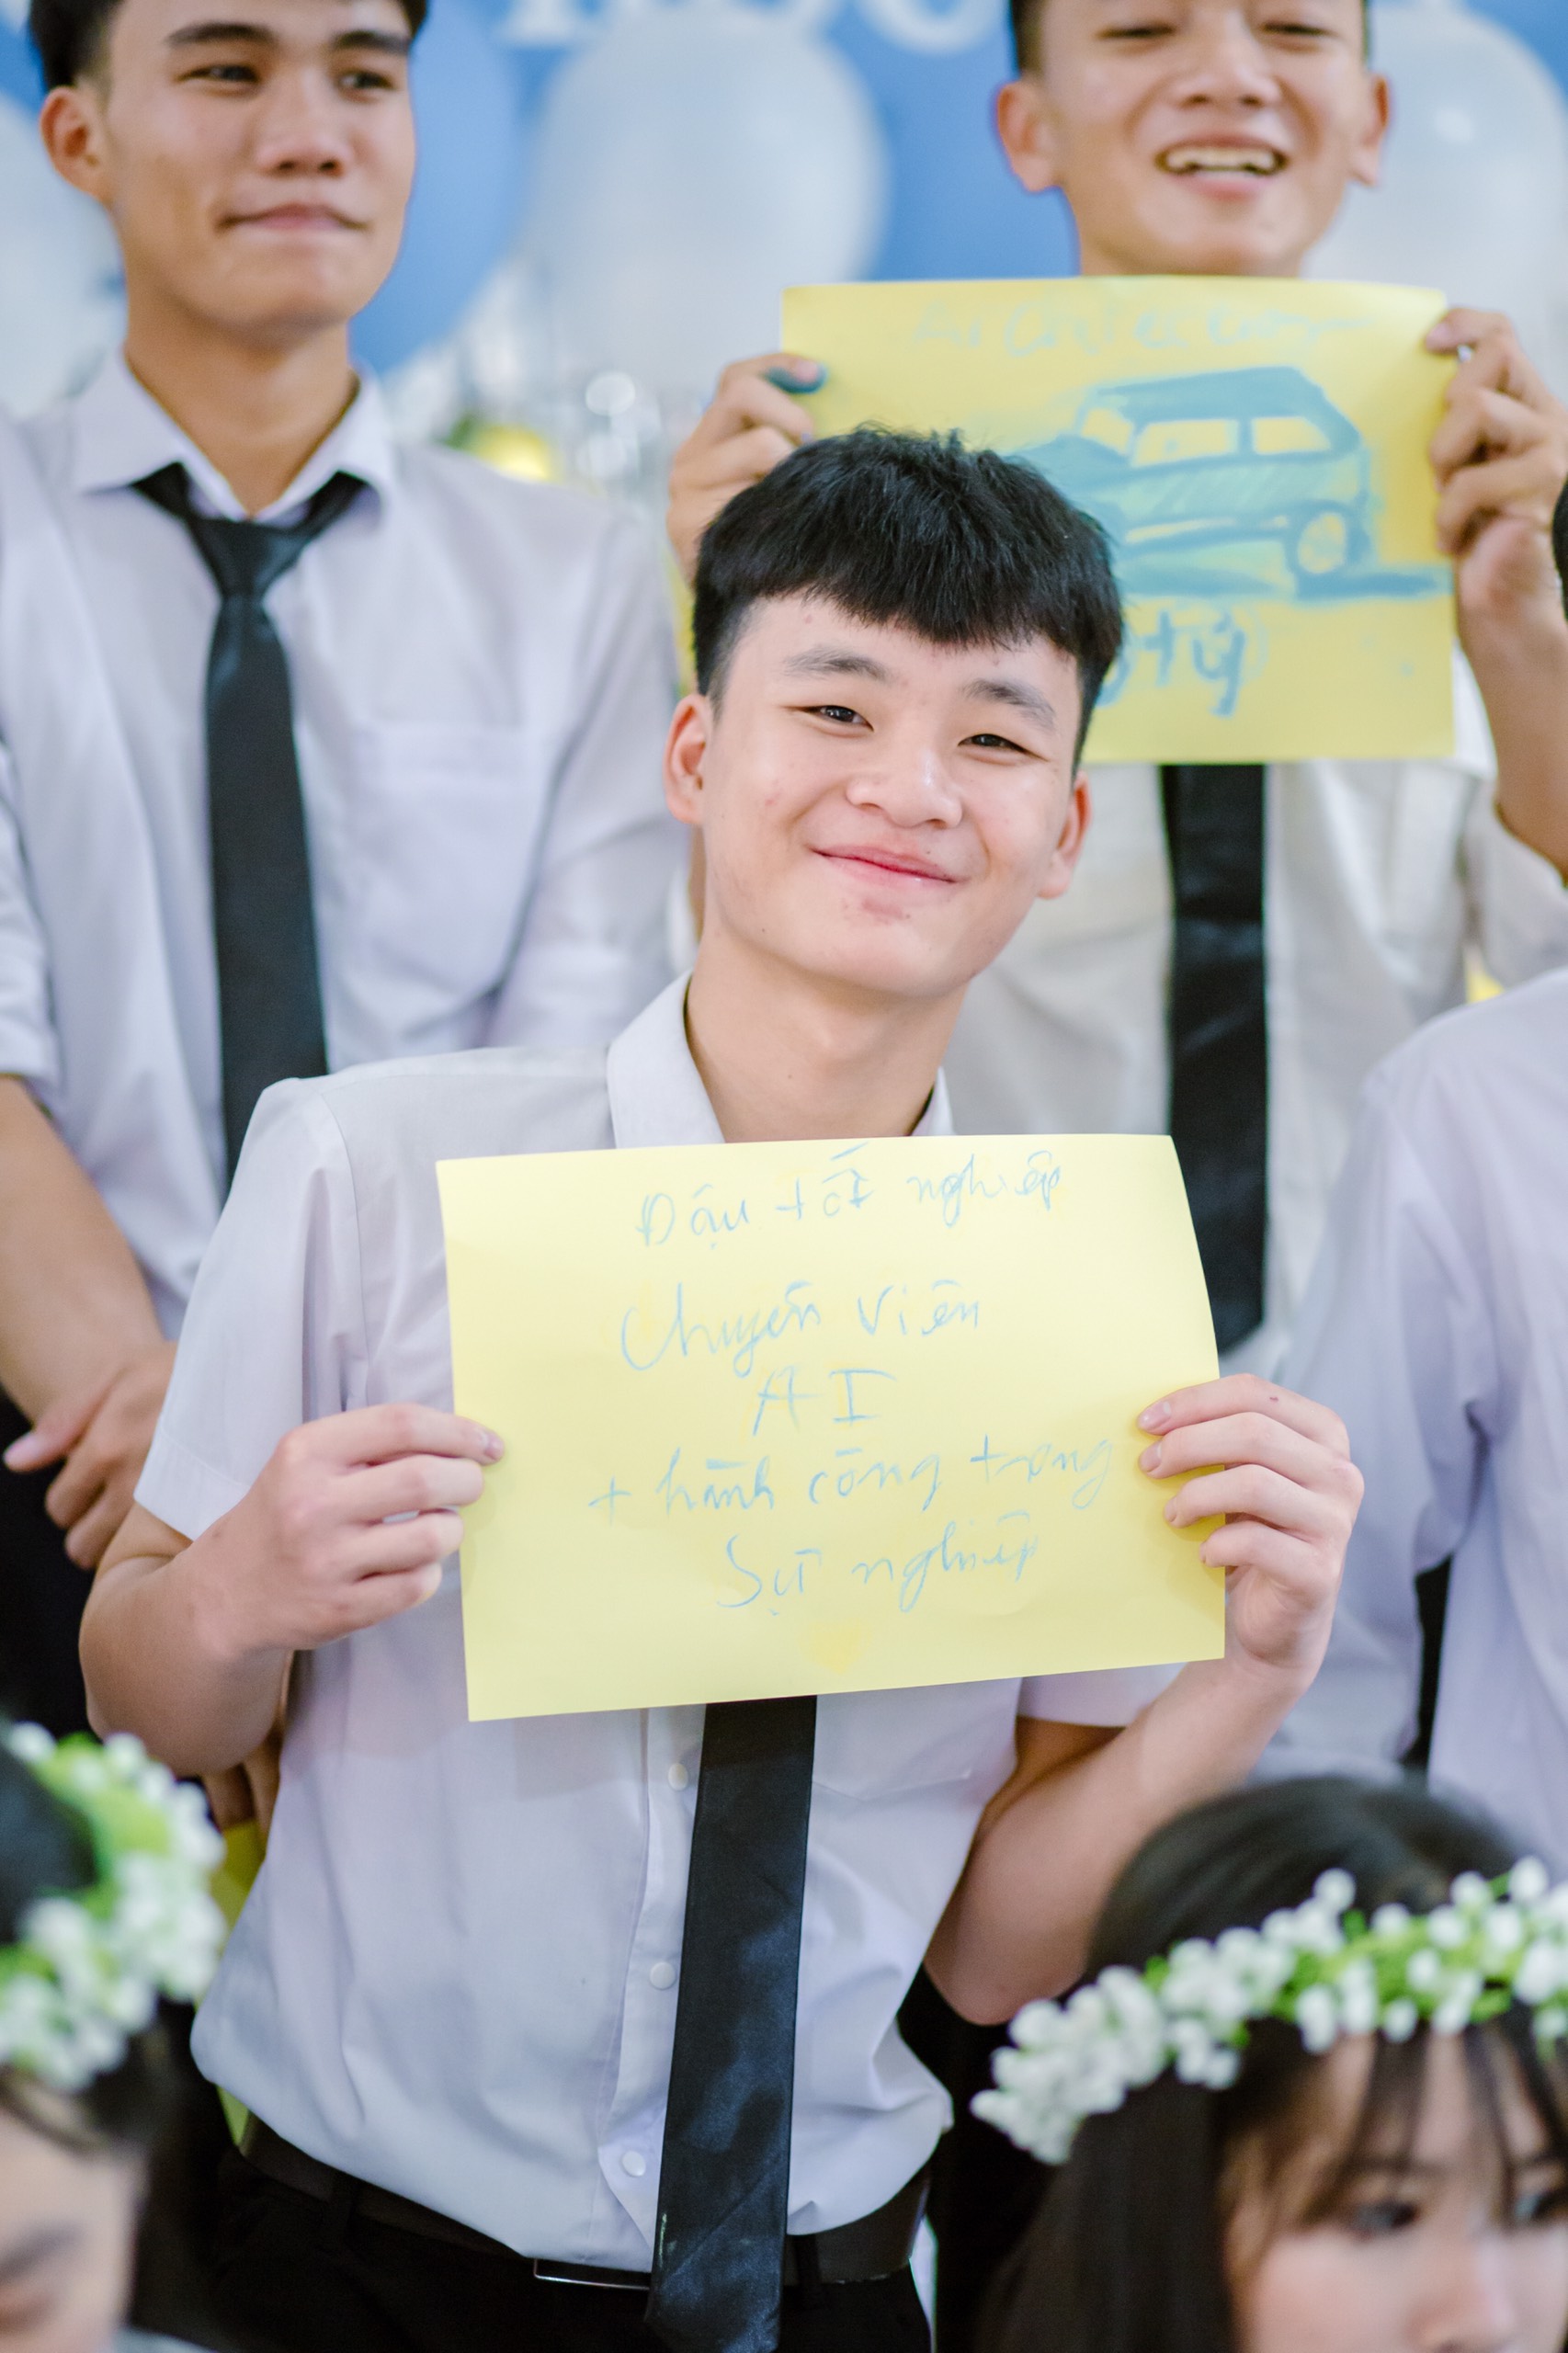 Đậu tốt nghiệp
Chuyên Viên
AI
+ hành công trong
Sự nghiệp
tỷ